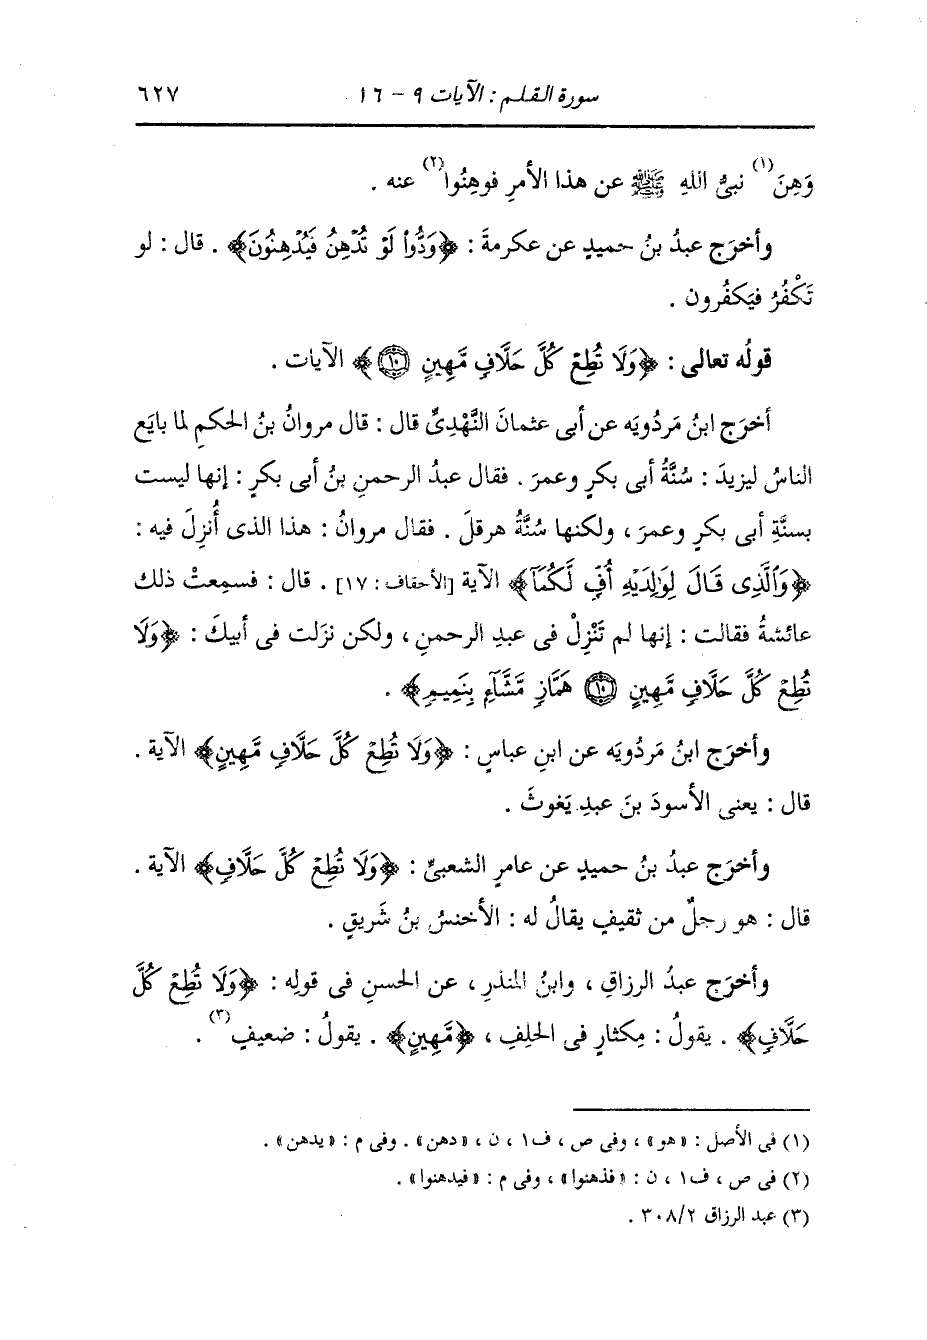 سورة القلم : الآيات ٩ - ١٦ ٦٢٧
وَهِنَ(١) نبىُّ اللهِ ﷺ عن هذا الأمرِ فوهِنُوا(٢) عنه .
وأخرَج عبدُ بنُ حميدٍ عن عكرمةَ : ﴿وَدُّوا۟ لَوْ تُدْهِنُ فَيُدْهِنُونَ﴾ . قال : لو
تَكْفُرُ فيَكفُرون .
قولُه تعالى : ﴿وَلَا تُطِعْ كُلَّ حَلَّافٍ مَّهِينٍ ١٠﴾ الآيات .
أخرَج ابنُ مَردُويَه عن أبى عثمانَ النَّهْدِىِّ قال : قال مروانُ بنُ الحكمِ لما بايَع
الناسُ ليزيدَ : سُنَّةُ أبى بكرٍ وعمرَ . فقال عبدُ الرحمنِ بنُ أبى بكرٍ : إنها ليست
بسنَّةِ أبى بكرٍ وعمرَ ، ولكنها سُنَّةُ هرقلَ . فقال مروانُ : هذا الذى أُنزِلَ فيه :
﴿وَٱلَّذِى قَالَ لِوَٰلِدَيْهِ أُفٍّ لَّكُمَآ﴾ الآية [الأحقاف : ١٧] . قال : فسمِعتْ ذلك
عائشةُ فقالت : إنها لم تَنْزِلْ فى عبدِ الرحمنِ ، ولكن نزَلت فى أبيكَ : ﴿وَلَا
تُطِعْ كُلَّ حَلَّافٍ مَّهِينٍ ١٠ هَمَّازٍ مَّشَّآءٍ بِنَمِيمٍ﴾ .
وأخرَج ابنُ مَردُويَه عن ابنِ عباسٍ : ﴿وَلَا تُطِعْ كُلَّ حَلَّافٍ مَّهِينٍ﴾ الآية .
قال : يعنى الأسودَ بنَ عبدِ يَغوثَ .
وأخرَج عبدُ بنُ حميدٍ عن عامرٍ الشعبىِّ : ﴿وَلَا تُطِعْ كُلَّ حَلَّافٍ﴾ الآية .
قال : هو رجلٌ من ثقيفٍ يقالُ له : الأخنسُ بنُ شَريقٍ .
وأخرَج عبدُ الرزاقِ ، وابنُ المنذرِ ، عن الحسنِ فى قولِه : ﴿وَلَا تُطِعْ كُلَّ
حَلَّافٍ﴾ . يقولُ : مِكثارٍ فى الحلِفِ ، ﴿مَّهِينٍ﴾ . يقولُ : ضعيفٍ(٣) .
(١) فى الأصل : «هو» ، وفى ص ، ف١ ، ن ، «دهن» . وفى م : «يدهن» .
(٢) فى ص ، ف١ ، ن : «فذهنوا» ، وفى م : «فيدهنوا» .
(٣) عبد الرزاق ٣٠٨/٢ .